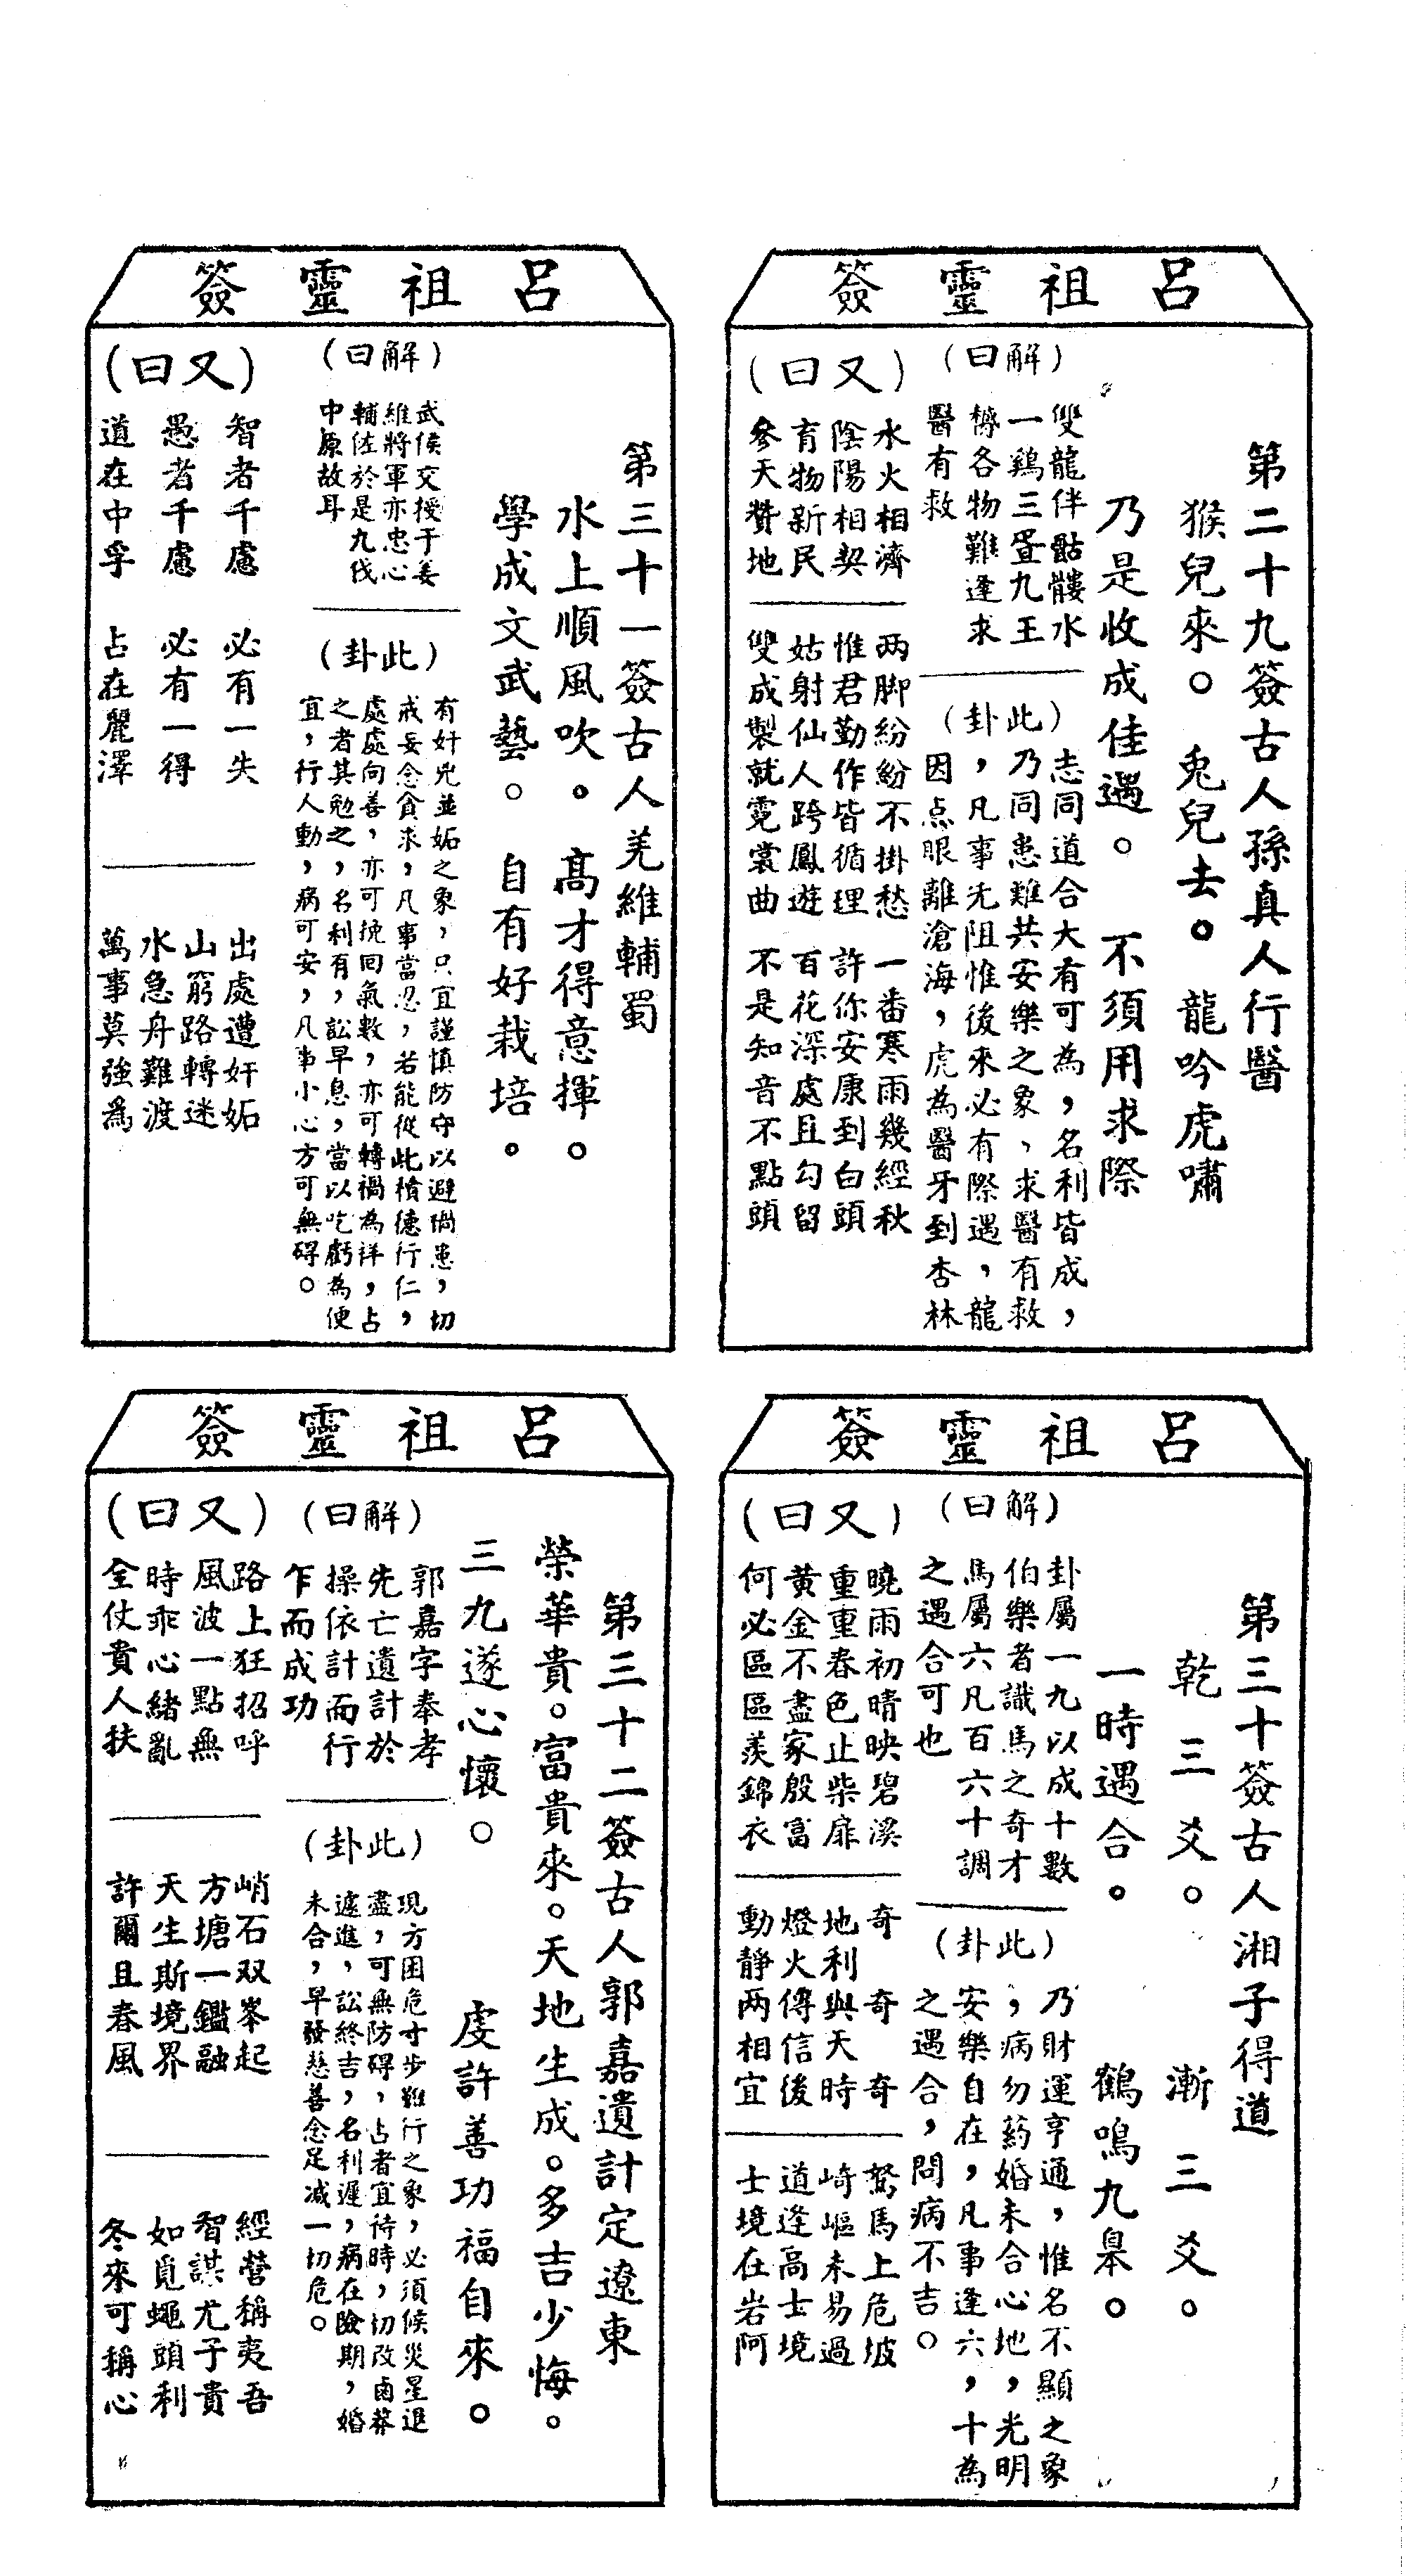 呂祖靈簽
第二十九簽古人孫真人行醫
猴兒來。兎兒去。龍吟虎嘯
乃是收成佳遇。不須用求際
(解曰)
雙龍伴骷髏水
一鷄三疍九王
觱各物難逢求
醫有救
(此卦)
志同道合大有可為，名利皆成，
乃同患難共安樂之象，求醫有救
，凡事无阻惟後來必有際遇，龍
因点眼離滄海，虎為醫牙到杏林
(又曰)
水火相濟
陰陽相契
育物新民
參天贊地
两脚紛紛不掛愁 一番寒雨幾經秋
惟君勤作皆循理 許你安康到白頭
姑射仙人跨鳳遊 百花深處且勾留
雙成製就霓裳曲 不是知音不點頭
呂祖靈簽
第三十簽古人湘子得道
乾三爻。漸三爻。
一時遇合。鶴鳴九臯。
(解曰)
卦屬一九以成十數
伯樂者識馬之奇才
馬屬六凡百六十調
之遇合可也
(此卦)
乃財運亨通，惟名不顯之象
，病勿葯婚未合心地，光明
安樂自在，凡事逢六，十為
之遇合，問病不吉。
(又曰)
曉雨初晴映碧溪
重重春色止柴扉
黃金不盡家殷富
何必區區羨錦衣
奇奇奇
地利與天時
燈火傳信後
動靜两相宜
駑馬上危坡
崎嶇未易過
道逢高士境
士境在岩阿
呂祖靈簽
第三十一簽古人羌維輔蜀
水上順風吹。高才得意揮。
學成文武藝。自有好栽培。
(解曰)
武侯交授于姜
維將軍亦忠心
輔佐於是九伐
中原故耳
(此卦)
有奸兇並妬之象，只宜謹慎防守以避禍患，切
戒妄念貪求，凡事當忍，若能從此積德行仁，
處處向善，亦可挽回氣數，亦可轉禍為祥，占
之者其勉之，名利有，訟早息，當以吃虧為便
宜，行人動，病可安，凡事小心方可無碍。
(又曰)
智者千慮 必有一失
愚者千慮 必有一得
道在中孚 占在麗澤
出處遭奸妬
山窮路轉迷
水急舟難渡
萬事莫強為
呂祖靈簽
第三十二簽古人郭嘉遺計定遼東
榮華貴。富貴來。天地生成。多吉少悔。
三九遂心懷。虔許善功福自來。
(解曰)
郭嘉字奉孝
先亡遺計於
操依計而行
乍而成功
(此卦)
現方困危寸步難行之象，必須候災星退
盡，可無防碍，占者宜待時，切改鹵莽
遽進，訟終吉，名利遲，病在險期，婚
未合，早發慈善念足减一切危。
(又曰)
路上狂招呼
風波一點無
時乖心緒亂
全仗貴人扶
峭石双峯起
方塘一鑑融
天生斯境界
許爾且春風
經營稱夷吾
智謀尤子貴
如覓蠅頭利
冬來可稱心